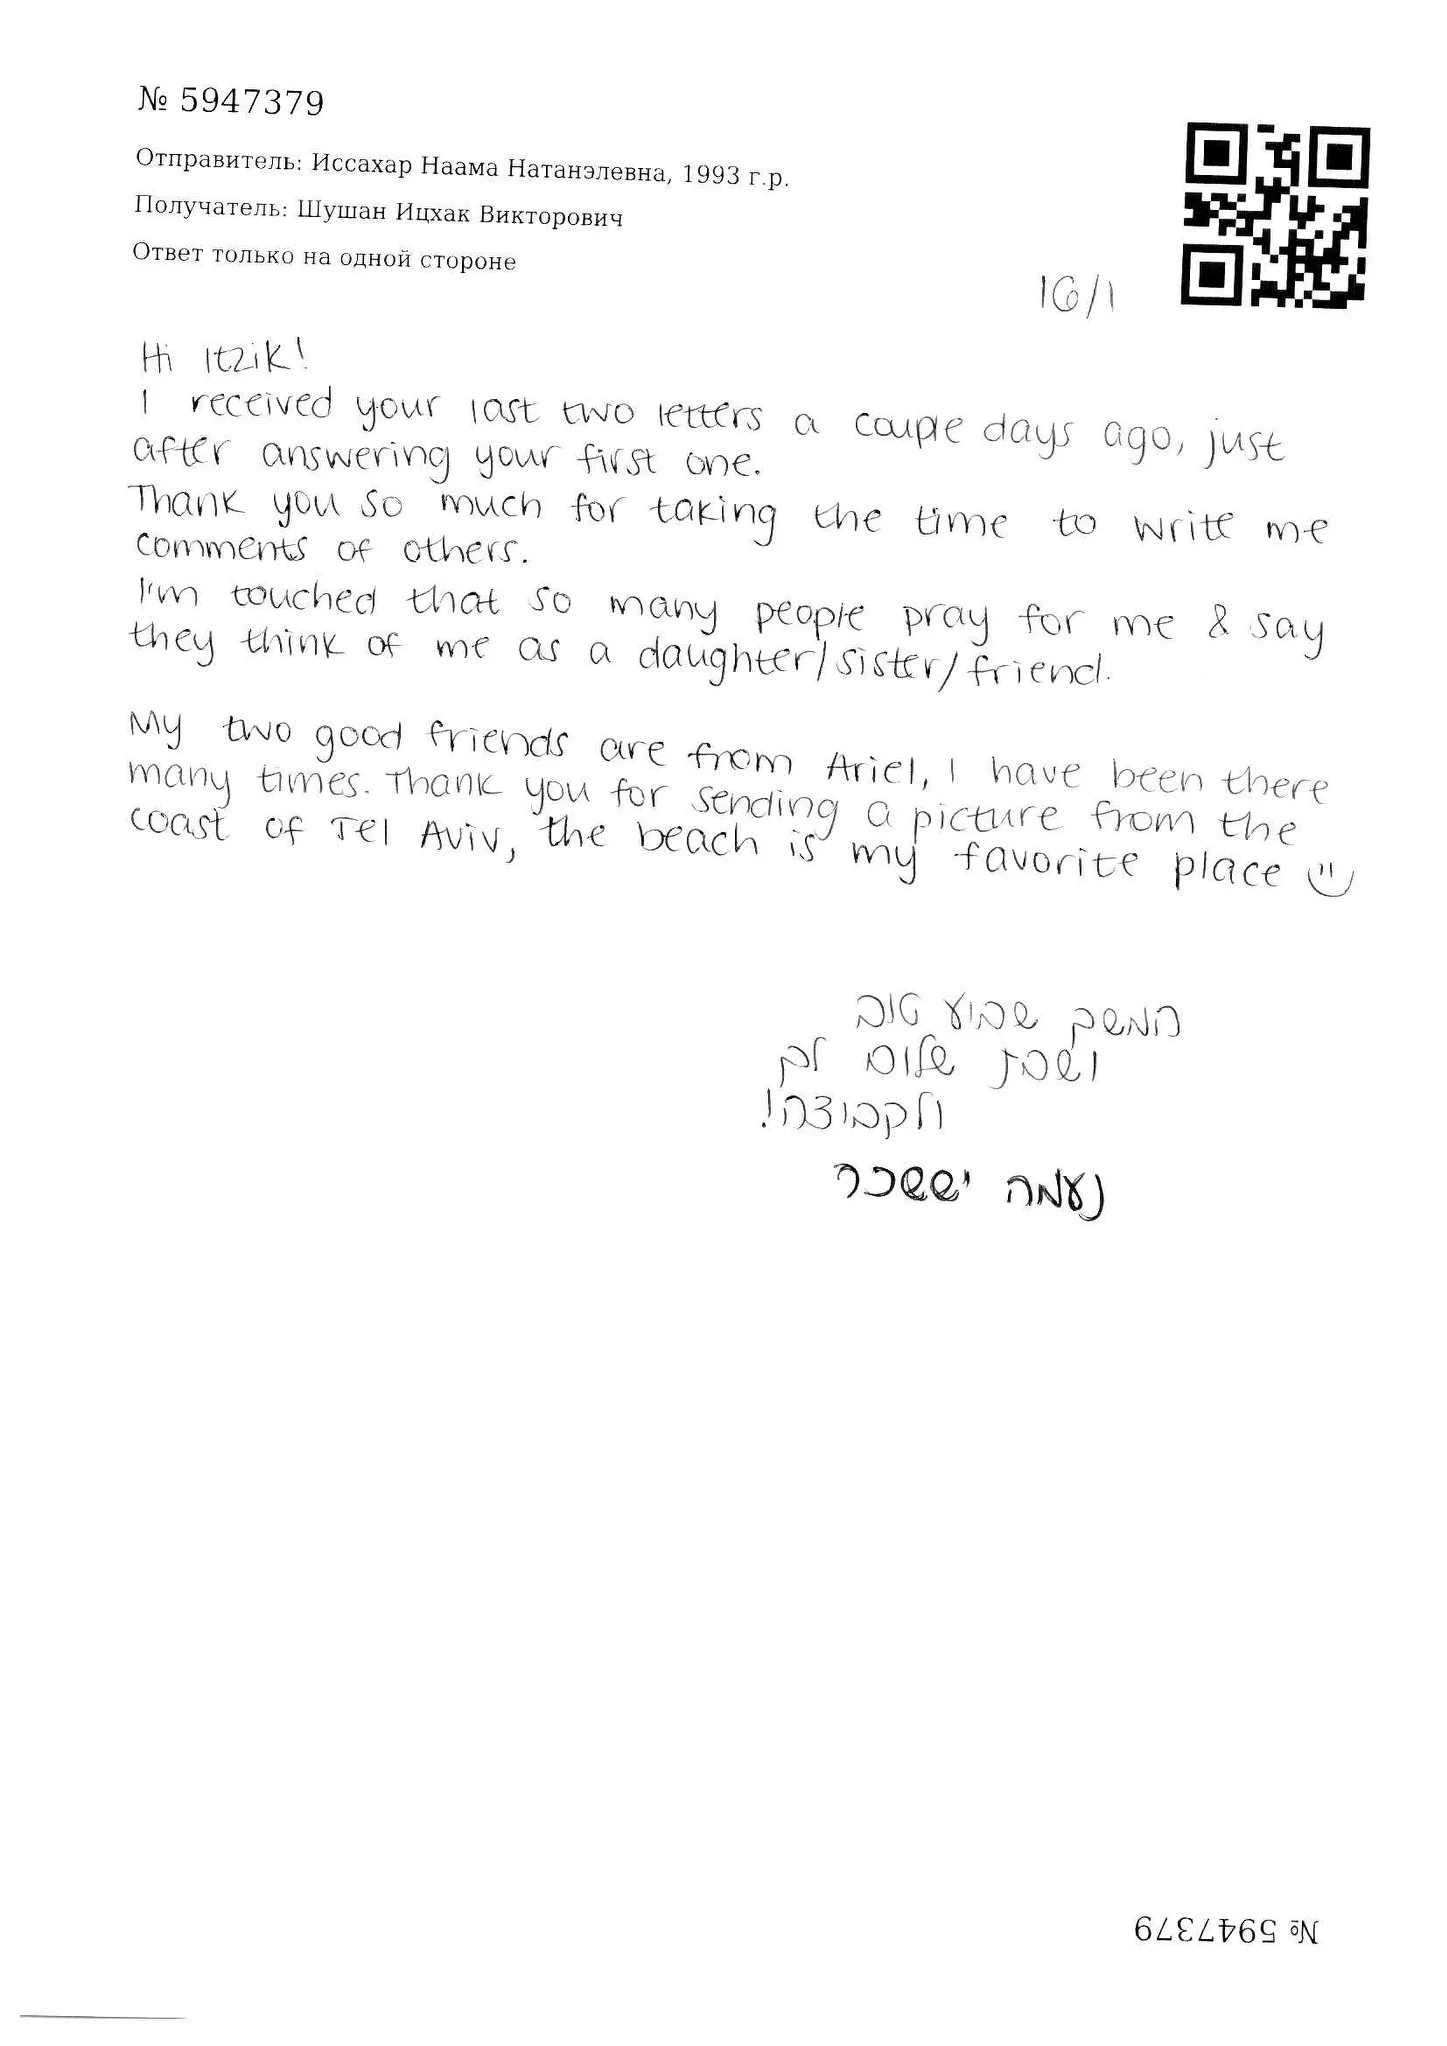 № 5947379
Отправитель: Иссахар Наама Натанэлевна, 1993 г.р.
Получатель: Шушан Ицхак Викторович
Ответ только на одной стороне
16/1
Hi Itzik!
I received your last two letters a couple days ago, just
after answering your first one.
Thank you so much for taking the time to write me
comments of others.
I'm touched that so many people pray for me & say
they think of me as a daughter/sister/friend.
My two good friends are from Ariel, I have been there
many times. Thank you for sending a picture from the
coast of Tel Aviv, the beach is my favorite place
המשך שבוע טוב
ושבת שלום לך
ולקבוצה!
נעמה יששכר
№ 5947379